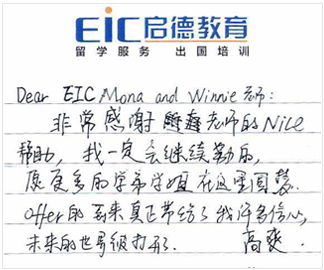 EIC启德教育
留学服务 出国培训
Dear EIC Mona and Winnie老师:
非常感谢 老师的Nice
帮助,我一定会继续勤的,
愿更多的学弟学姐在这里圆梦.
offer的到来真正带给了我许多信心,
未来的世界很打开.
高爽